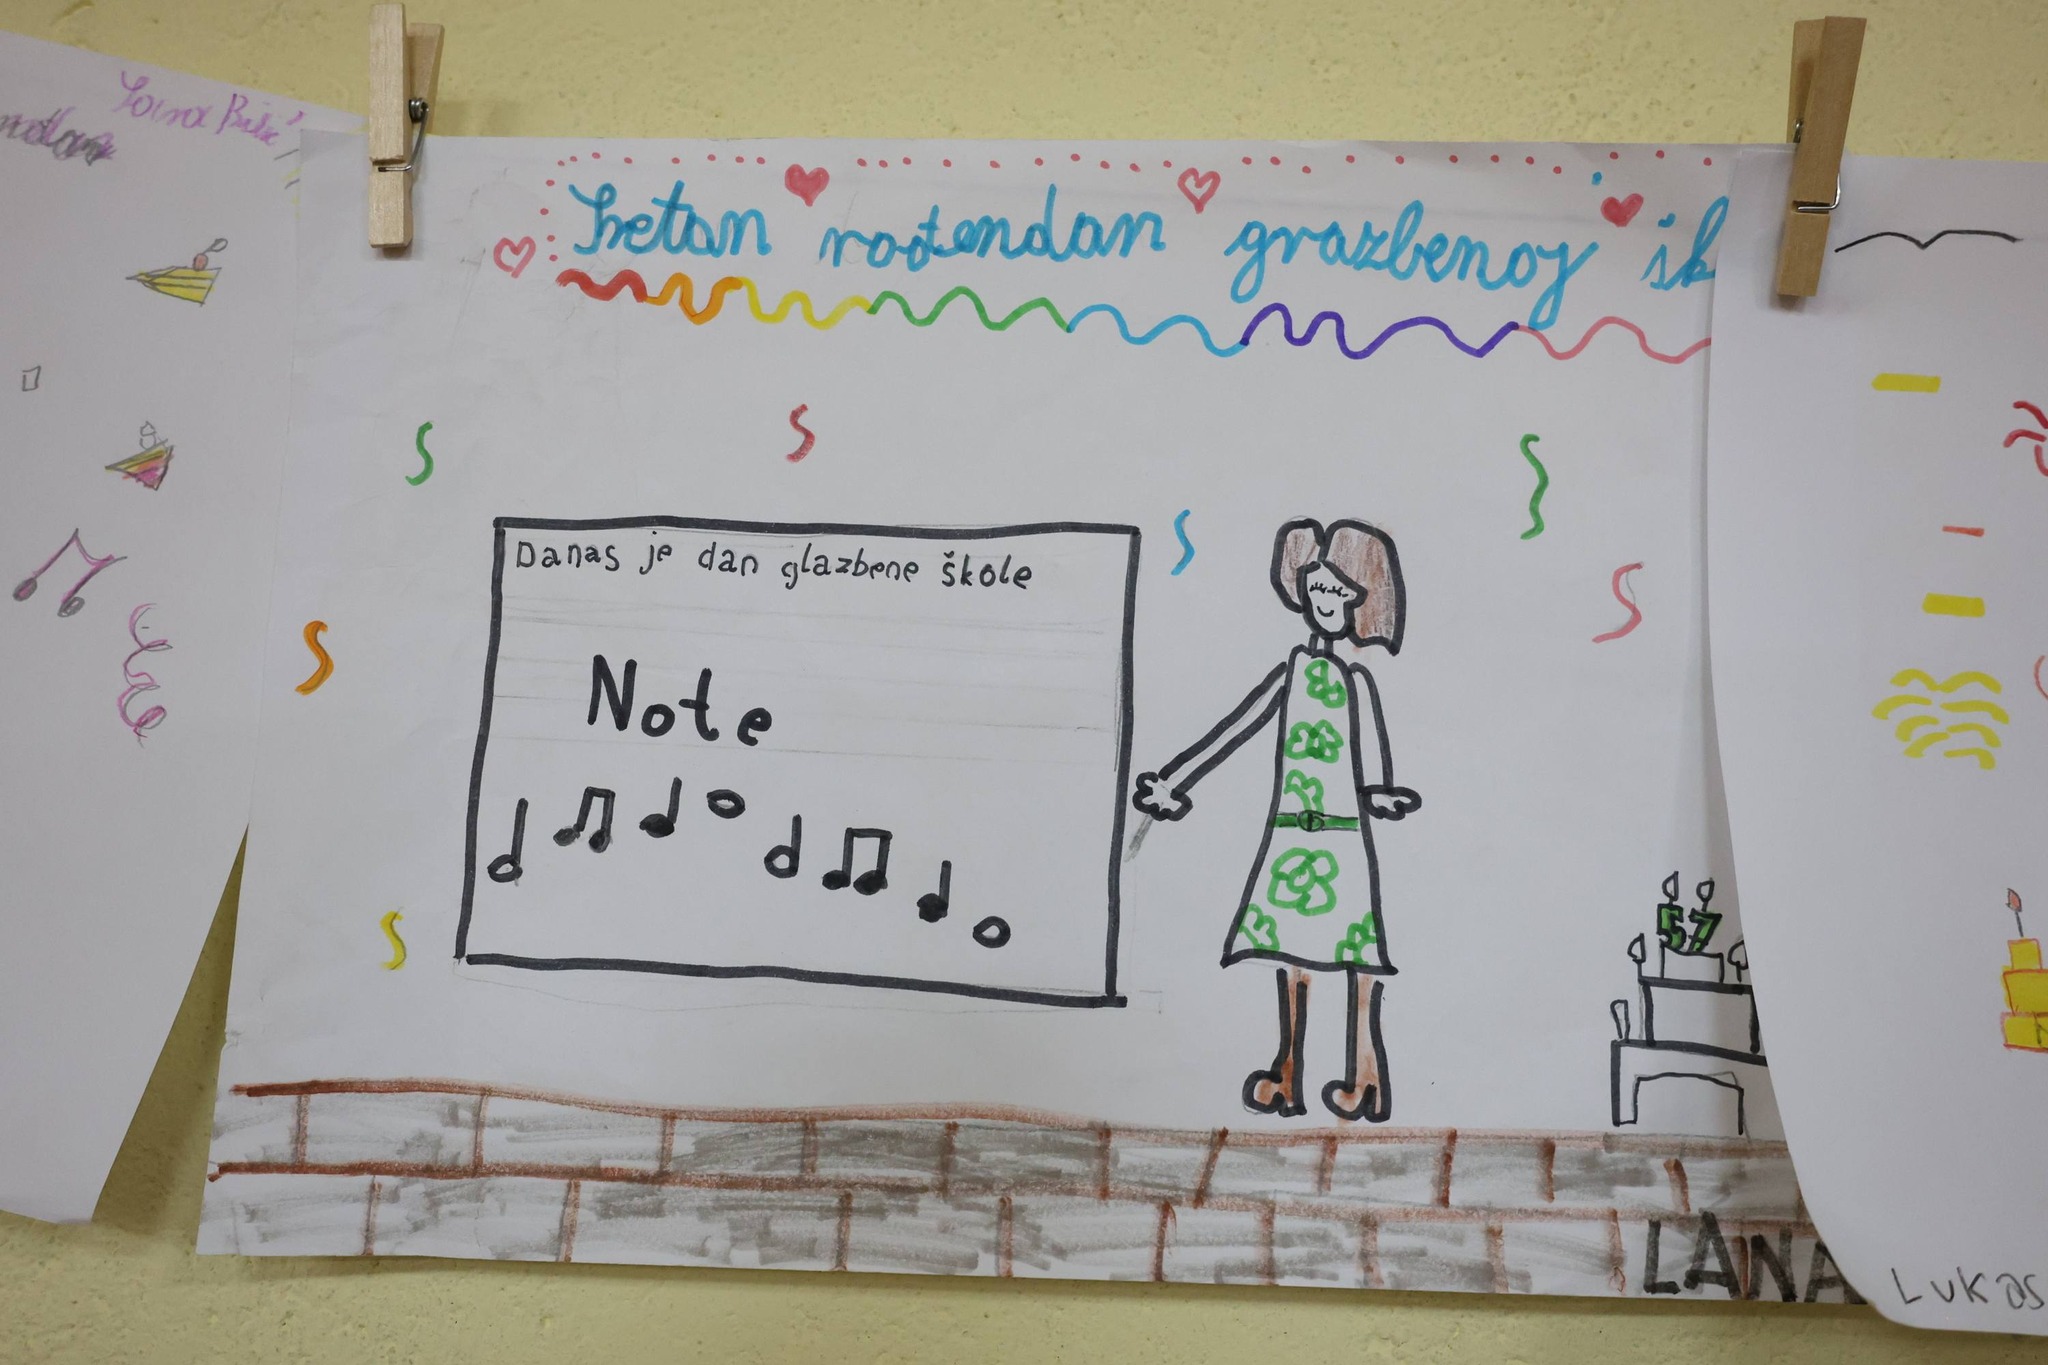 Sretan rođendan grazbenoj šk
Danas je dan glazbene škole
Note
57
LANA
Lukas